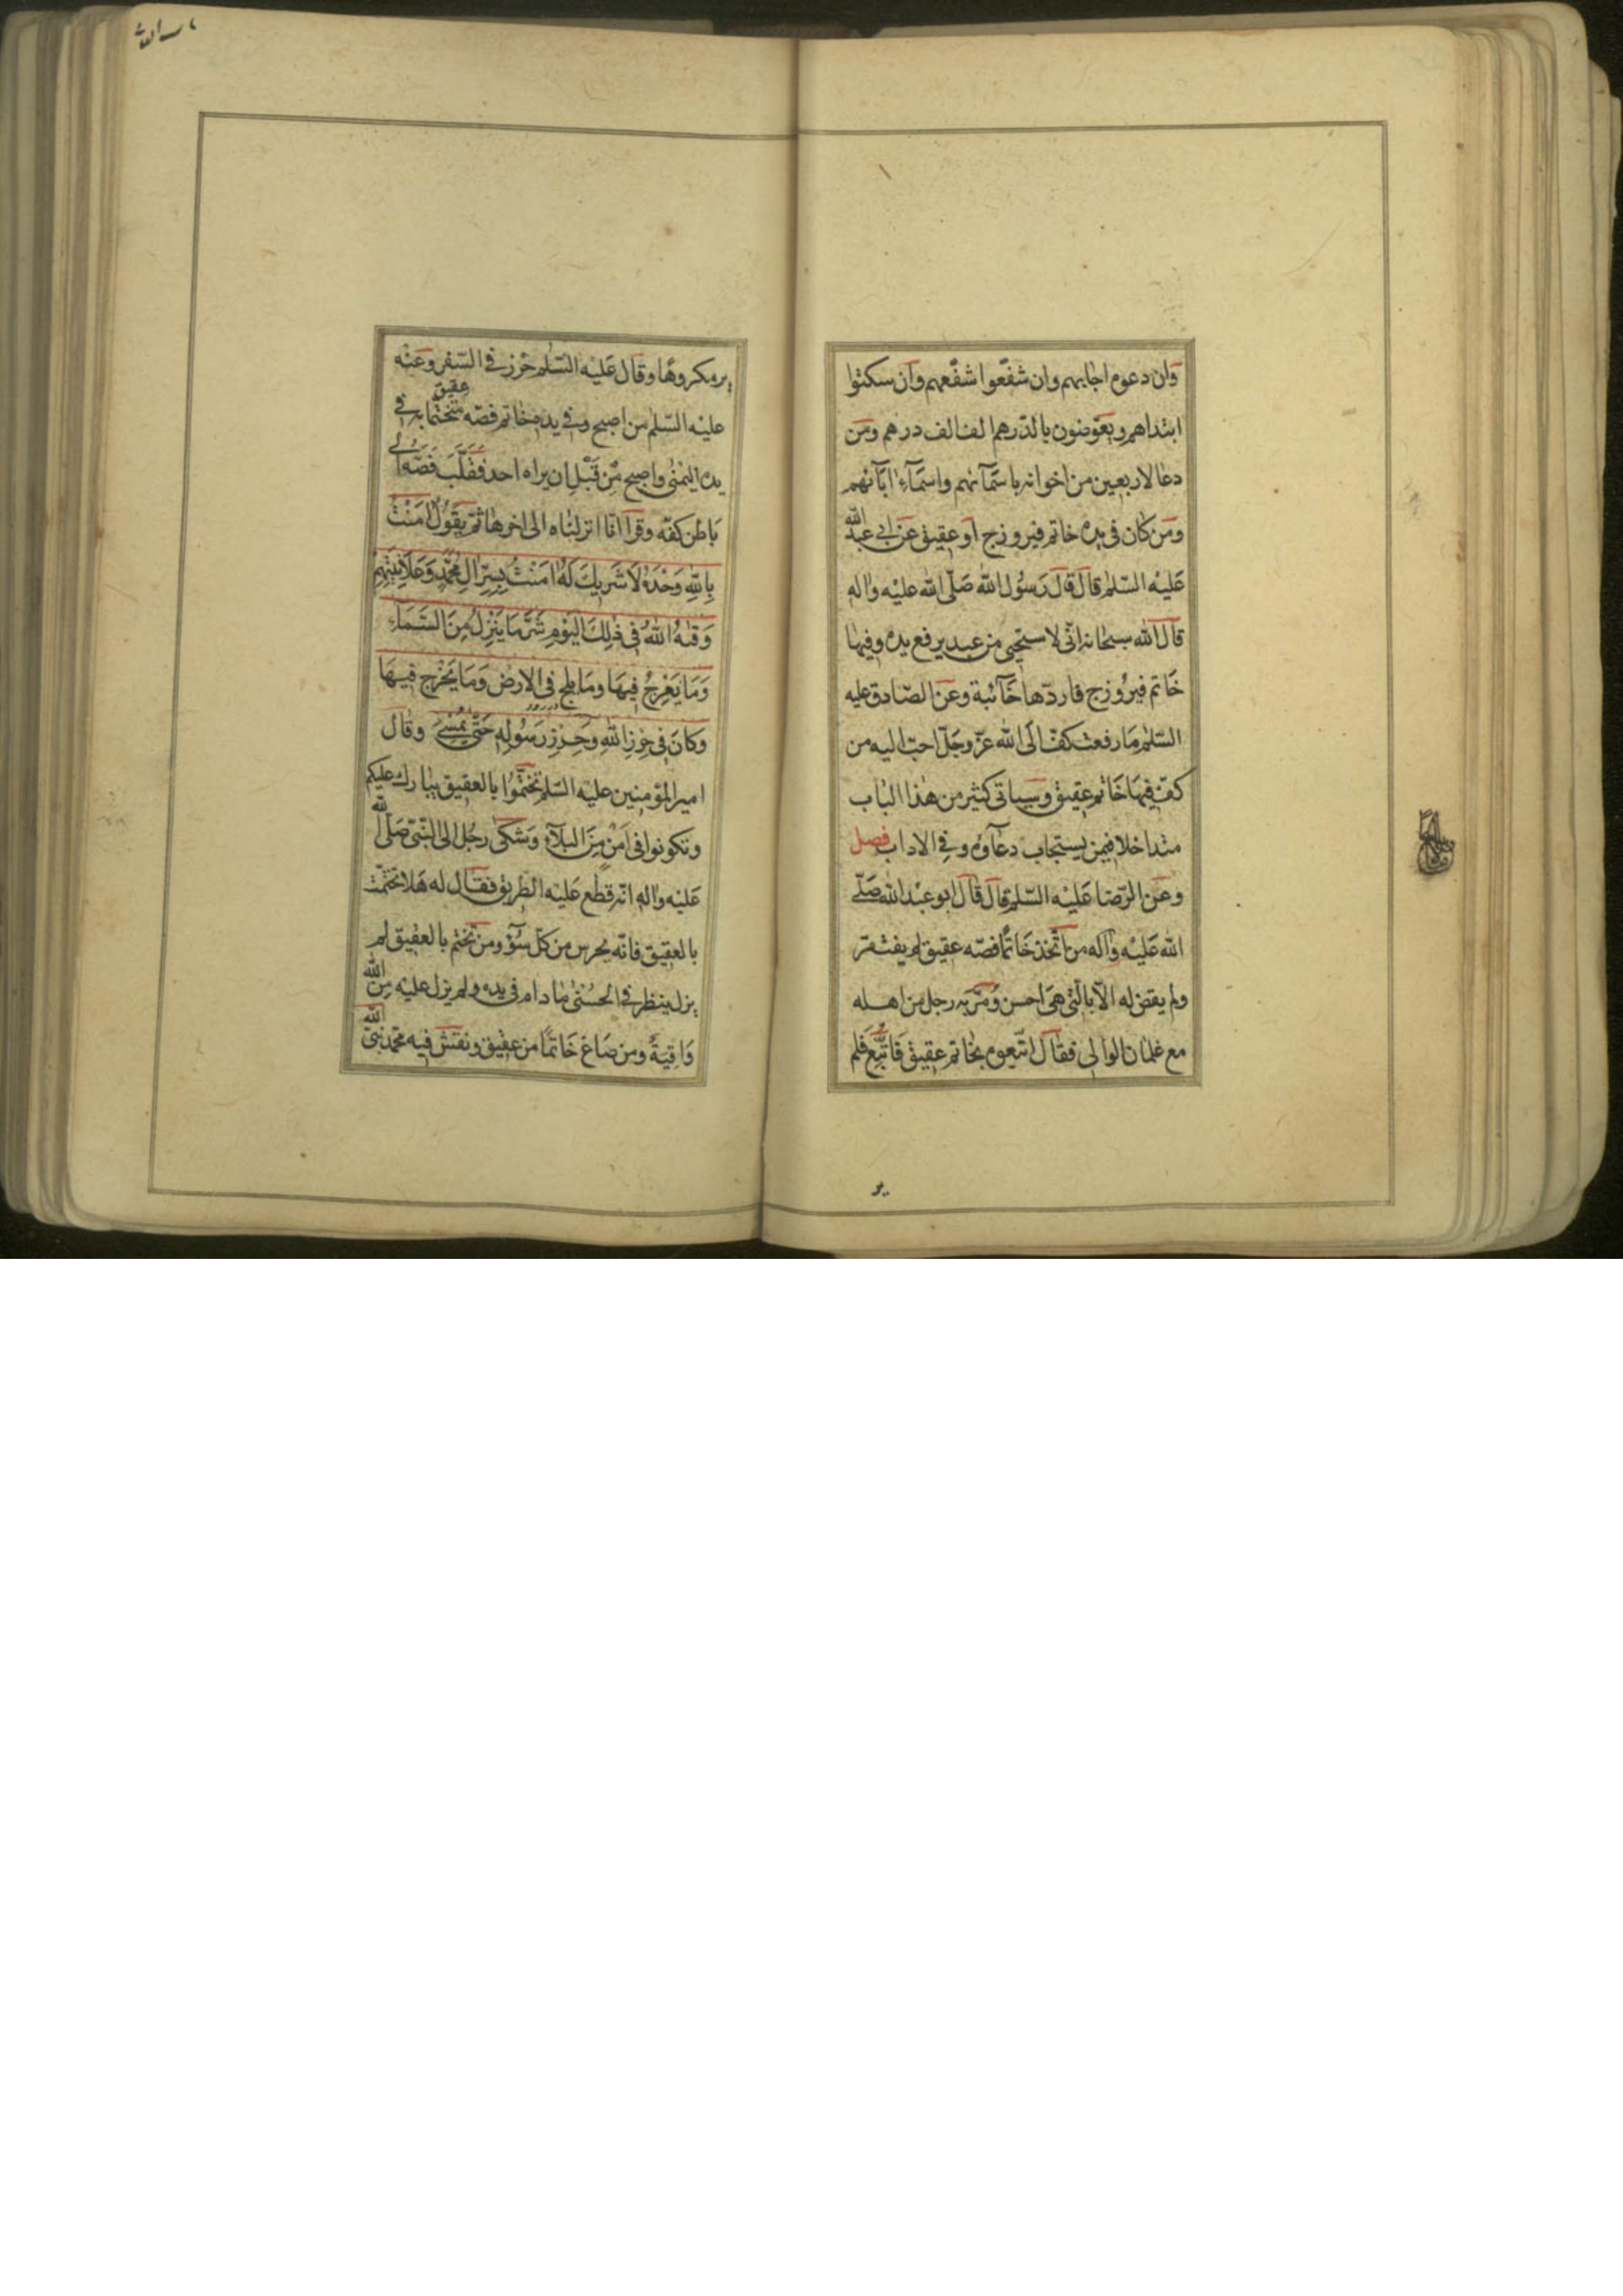 وان دعوه اجابهم وان شفّعوا شفّعهم وان سكتوا
ابتداهم ويعوّضون بالدّرهم الف الف درهم ومن
دعا لاربعين من اخوانه باسمآئهم واسمآء ابآئهم
ومن كان فى يده خاتم فيروزج او عقيق عن ابى عبد الله
عليه السّلم قال قال رسول الله صلّى الله عليه واله
قال الله سبحانه انّى لاستحيى من عبد يرفع يده وفيها
خاتم فيروزج فاردّها خآئبة وعن الصّادق عليه
السّلم ما رفعت كفّ الى الله عزّ وجلّ احبّ اليه من
كفّ فيها خاتم عقيق وسياتى كثير من هذا الباب
متداخلا فيمن يستجاب دعآؤه وفى الاداب فصل
وعن الرّضا عليه السّلم قال قال ابو عبد الله صلّى
الله عليه وآله من اتّخذ خاتمًا فصّه عقيق لم يفتقر
ولم يقض له الّا بالّتى هى احسن ومرّ به رجل من اهله
مع غلمان الوالى فقال اتبعوه بخاتم عقيق فاتّبع فلم
ير
ير مكروهًا وقال عليه السّلم حرز فى السّفر وعنه
عليه السّلم من اصبح وفى يده خاتم فصّه عقيق متختّمًا به فى
يده اليمنى واصبح من قبل ان يراه احد فقلّب فصّه الى
باطن كفّه وقرأ انّا انزلناه الى اخرها ثمّ يقول امنت
بِاللهِ وَحْدَهُ لَا شَرِيكَ لَهُ امَنْتُ بِسِرِّ الِ مُحَمَّدٍ وَعَلَانِيَتِهِمْ
وَقٰهُ اللهُ فى ذٰلِكَ اليَوْمِ شَرَّ مَا يَنْزِلُ مِنَ السَّمَآءِ
وَمَا يَعْرِجُ فِيهَا وَمَا يلج فى الارض وَمَا يَخْرج فِيهَا
وكانَ فى حِرْزِ اللهِ وحِرْزِ رَسُولِهِ حَتّى يُمْسِىَ وقال
امير المؤمنين عليه السّلم تختّموا بالعقيق يبارك عليكم
وتكونوا فى امن من البلآء وشكى رجل الى النّبىّ صلّى الله
عليه واله انّه قطع عليه الطريق فقال له هلا تختّمت
بالعقيق فانّه يحرس من كلّ سوٓء ومن تختّم بالعقيق لم
يزل ينظر فى الحسنى ما دام فى يده ولم يزل عليه من الله
واقيةٌ ومن صاغ خاتمًا من عقيق ونقش فيه محمّد نبىّ الله